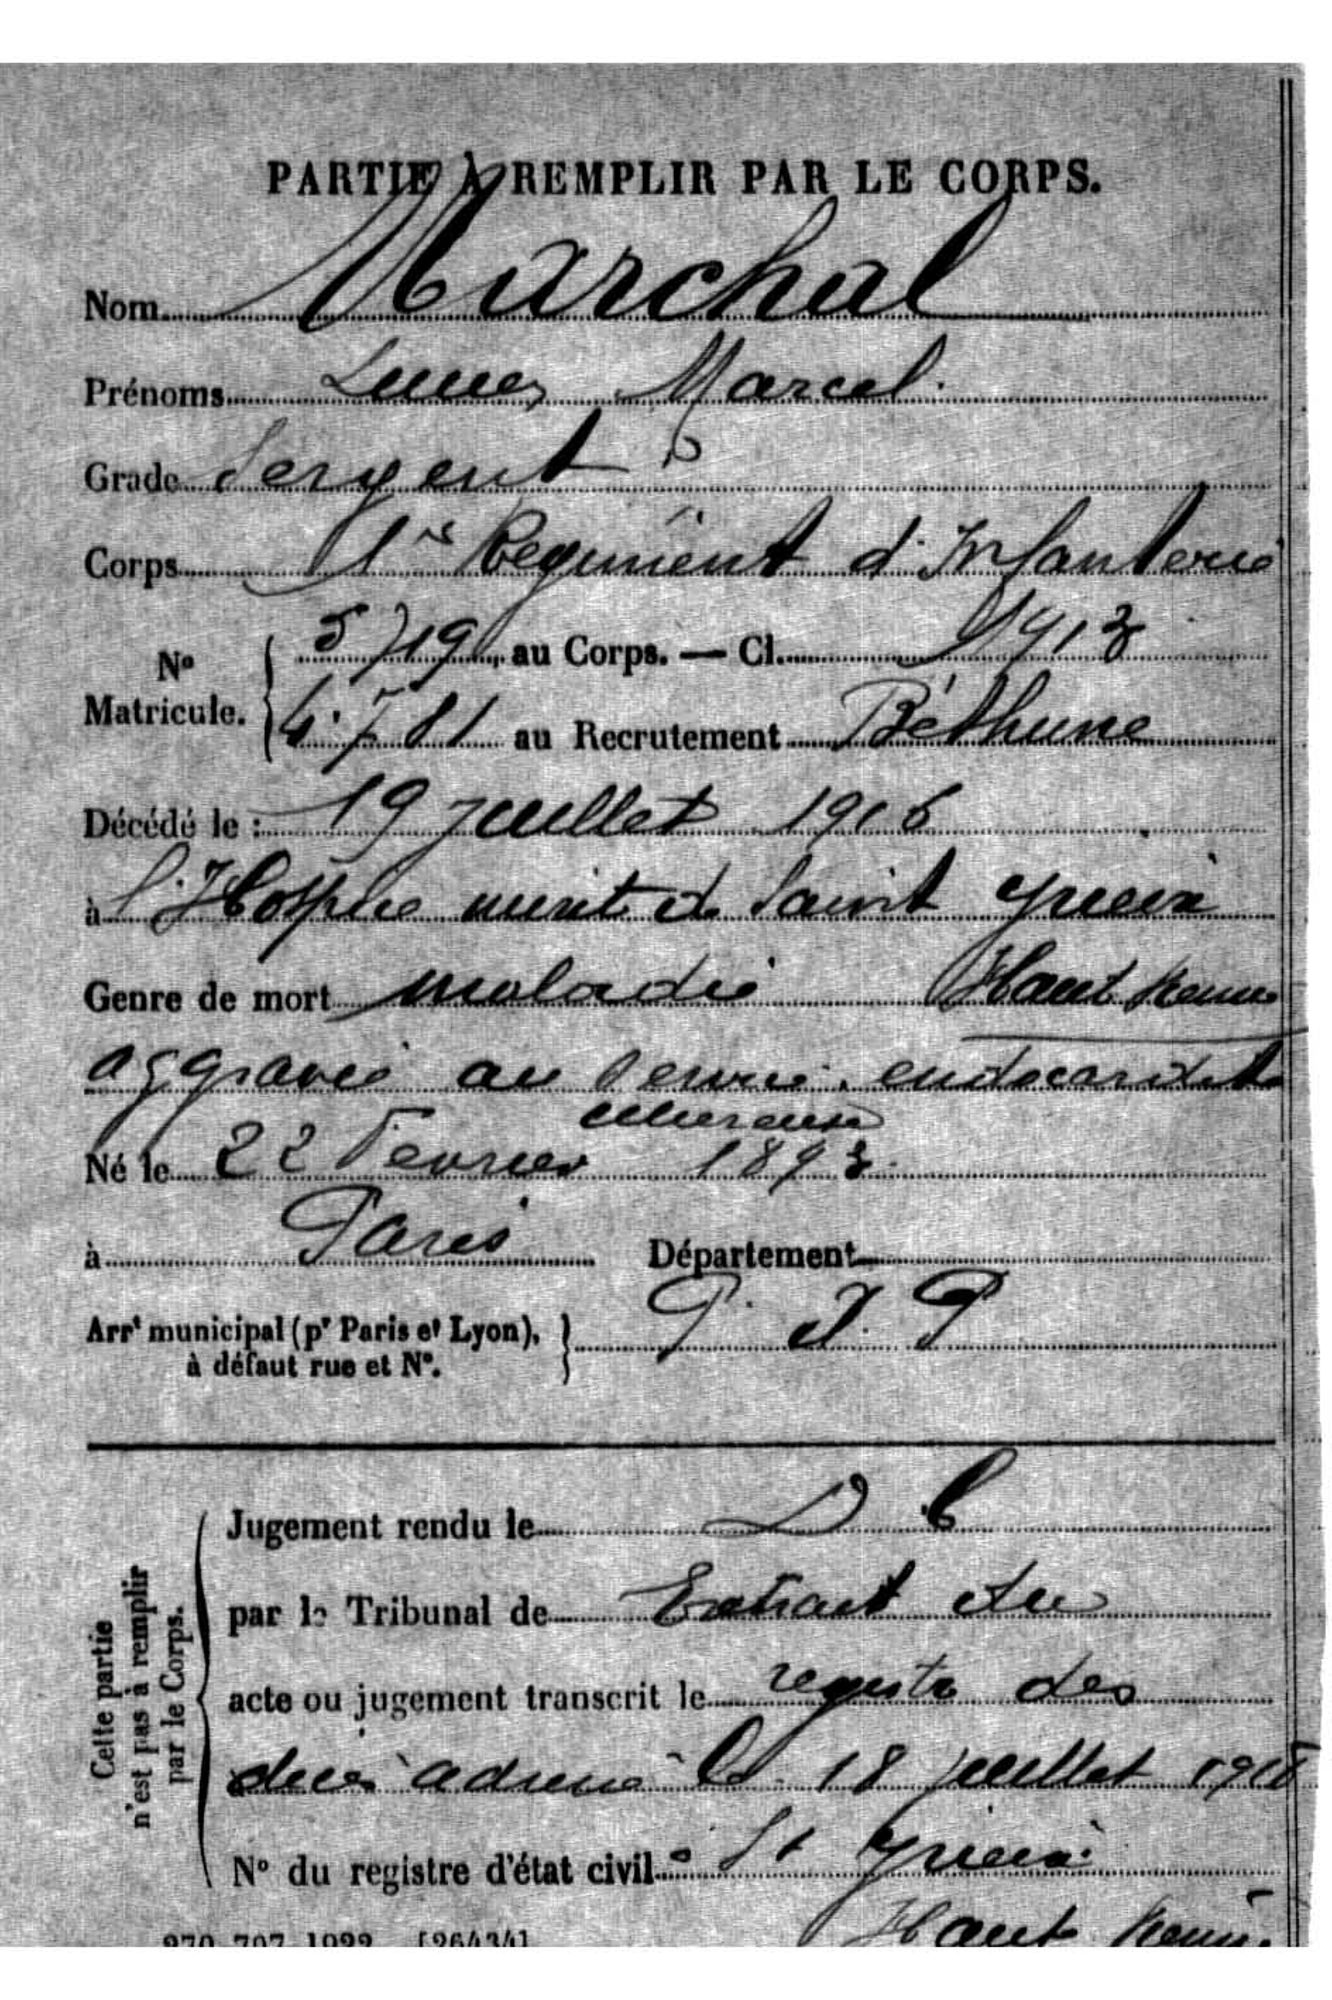 PARTIE À REMPLIR PAR LE CORPS.
Nom Marchal
Prénoms Marcel
Grade Sergent
Corps 1er Regiment d'Infanterie
No Matricule. { 5719 au Corps. — Cl. 1913
au Recrutement Béthune
Décédé le : 19 juillet 1916
à l'Hospice mixte de Saint Yrieix
Genre de mort maladie Haute Vienne
aggravée au service, endocardite
ulcereuse
Né le 22 Fevrier 1893
à Paris Département
Arrt municipal (pr Paris et Lyon), à défaut rue et No. } P. d. P
Cette partie n'est pas à remplir par le Corps.
Jugement rendu le
par le Tribunal de Extrait du
acte ou jugement transcrit le registre des
décès adressé le 18 juillet
No du registre d'état civil à St Yrieix
Haute Vienne
270-707-1922. [26434]